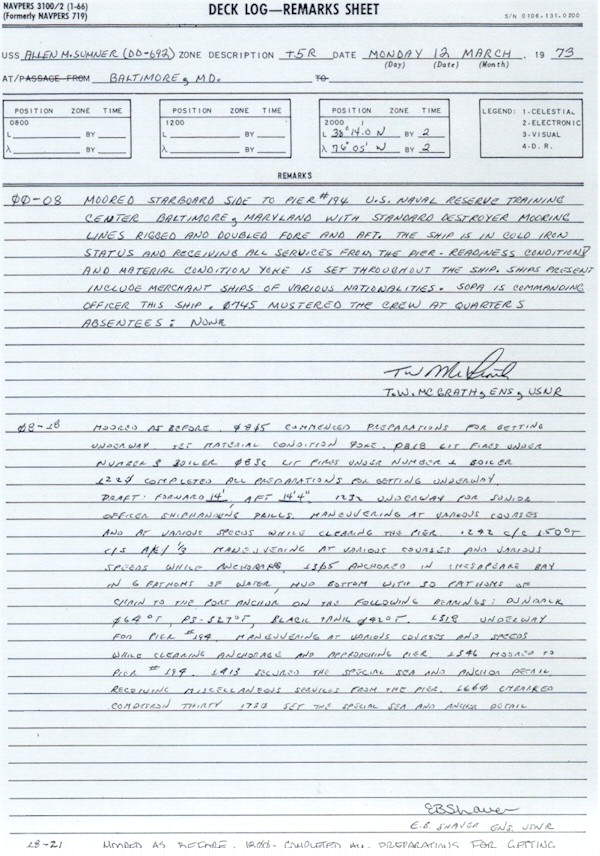 NAVPERS 3100/2 (1-66)
(Formerly NAVPERS 719)
DECK LOG—REMARKS SHEET
S/N 0106-131-0200
USS ALLEN M. SUMNER (DD-692) ZONE DESCRIPTION +5R DATE MONDAY 12 MARCH, 19 73
(Day) (Date) (Month)
AT/PASSAGE FROM BALTIMORE, MD. TO
POSITION ZONE TIME
0800
L BY
λ BY
POSITION ZONE TIME
1200
L BY
λ BY
POSITION ZONE TIME
2000
L 38° 14.0 N BY 2
λ 76° 05' N BY 2
LEGEND: 1-CELESTIAL
2-ELECTRONIC
3-VISUAL
4-D.R.
REMARKS
00-08 MOORED STARBOARD SIDE TO PIER #194 U.S. NAVAL RESERVE TRAINING
CENTER BALTIMORE, MARYLAND WITH STANDARD DESTROYER MOORING
LINES RIGGED AND DOUBLED FORE AND AFT. THE SHIP IS IN COLD IRON
STATUS AND RECEIVING ALL SERVICES FROM THE PIER. READINESS CONDITION
AND MATERIAL CONDITION YOKE IS SET THROUGHOUT THE SHIP. SHIPS PRESENT
INCLUDE MERCHANT SHIPS OF VARIOUS NATIONALITIES. SOPA IS COMMANDING
OFFICER THIS SHIP. 0745 MUSTERED THE CREW AT QUARTERS
ABSENTEES: NONE
T.W. MCGRATH, ENS, USNR
MOORED AS BEFORE. COMMENCED PREPARATIONS FOR GETTING
UNDERWAY. SET MATERIAL CONDITION YOKE. LIT FIRES UNDER
NUMBER 3 BOILER LIT FIRES UNDER NUMBER BOILER
1220 COMPLETED ALL PREPARATIONS FOR GETTING UNDERWAY.
DRAFT: FORWARD 14', AFT 14'4". 1232 UNDERWAY FOR JUNIOR
OFFICER SHIPHANDING DRILLS. MANEUVERING AT VARIOUS COURSES
AND AT VARIOUS SPEEDS WHILE CLEARING THE PIER. 1242 C/C 150°T
C/S A/E/ 1/3 MANEUVERING AT VARIOUS COURSES AND VARIOUS
SPEEDS WHILE ANCHORING. ANCHORED IN CHESAPEAKE BAY
IN 6 FATHOMS OF WATER, MUD BOTTOM WITH 30 FATHOMS OF
CHAIN TO THE PORT ANCHOR ON THE FOLLOWING BEARINGS: DUNDALK
064°T, 327°T, BLACK TANK 042°T. 1518 UNDERWAY
FOR PIER #194. MANEUVERING AT VARIOUS COURSES AND SPEEDS
WHILE CLEARING ANCHORAGE AND APPROACHING PIER. 1546 MOORED TO
PIER #194. SECURED THE SPECIAL SEA AND ANCHOR DETAIL
RECEIVING MISCELLANEOUS SERVICES FROM THE PIER. EMBARKED
THIRTY SET THE SPECIAL SEA AND ANCHOR DETAIL
EBShaver
E.B. SHAVER ENS. USNR
18-21 MOORED AS BEFORE. COMPLETED ALL PREPARATIONS FOR GETTING